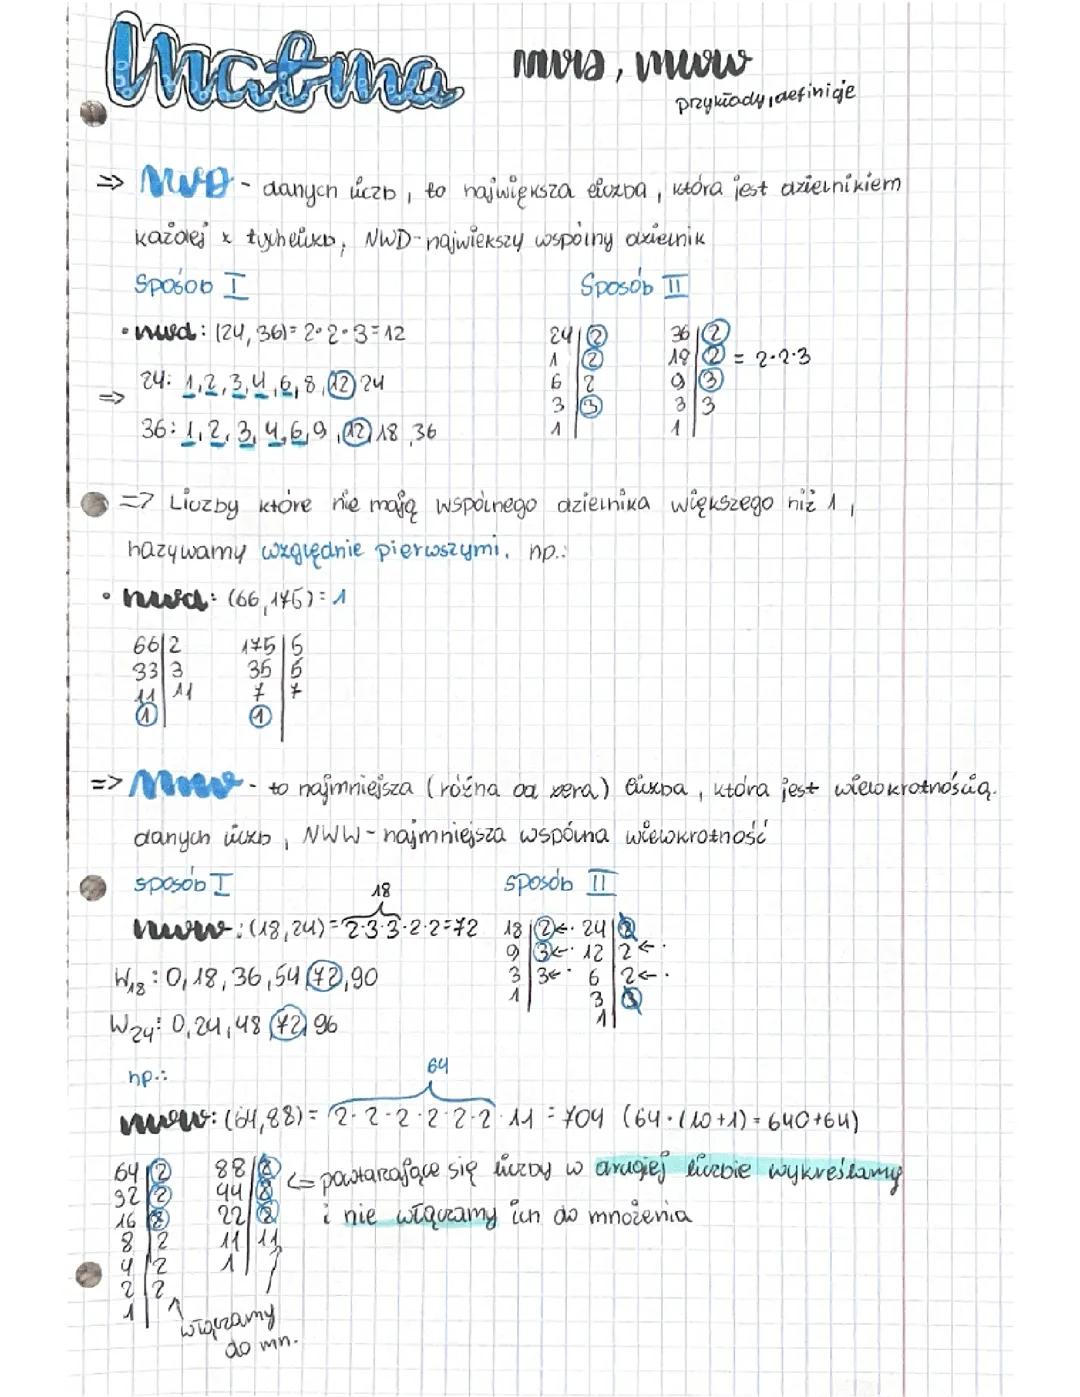 Matma nwd, nww
przykłady, definicje
=> NWD - danych liczb, to największa liczba, która jest dzielnikiem
każdej z tych liczb, NWD - największy wspólny dzielnik
Sposób I
Sposób II
• nwd: (24, 36) = 2·2·3 = 12
24: 1, 2, 3, 4, 6, 8, 12 24
=>
36: 1, 2, 3, 4, 6, 9, 12 18, 36
24 | 2 36 | 2
1 | 2 18 | 2 = 2·2·3
6 | 2 9 | 3
3 | 3 3 | 3
1 | 1 |
=> Liczby które nie mają wspólnego dzielnika większego niż 1,
nazywamy względnie pierwszymi, np.:
• nwd: (66, 175) = 1
66 | 2 175 | 5
33 | 3 35 | 5
11 | 11 7 | 7
1 | 1 |
=> NWW - to najmniejsza (różna od zera) liczba, która jest wielokrotnością
danych liczb, NWW - najmniejsza wspólna wielokrotność
sposób I
sposób II
18
nww: (18, 24) = 2·3·3·2·2 = 72
W18: 0, 18, 36, 54 72, 90
W24: 0, 24, 48 72 96
18 | 2 ← · 24 | 2
9 | 3 ← · 12 | 2 ← ·
3 | 3 ← · 6 | 2 ← ·
1 | 3 | 3
1 |
np.:
64
nww: (64, 88) = 2·2·2·2·2·2·11 = 704 (64·(10+1) = 640+64)
64 | 2 88 | 2 <= powtarzające się liczby w drugiej liczbie wykreślamy
32 | 2 44 | 2
16 | 2 22 | 2 i nie włączamy ich do mnożenia
8 | 2 11 | 11
4 | 2 1 |
2 | 2
1 |
włączamy
do mn.